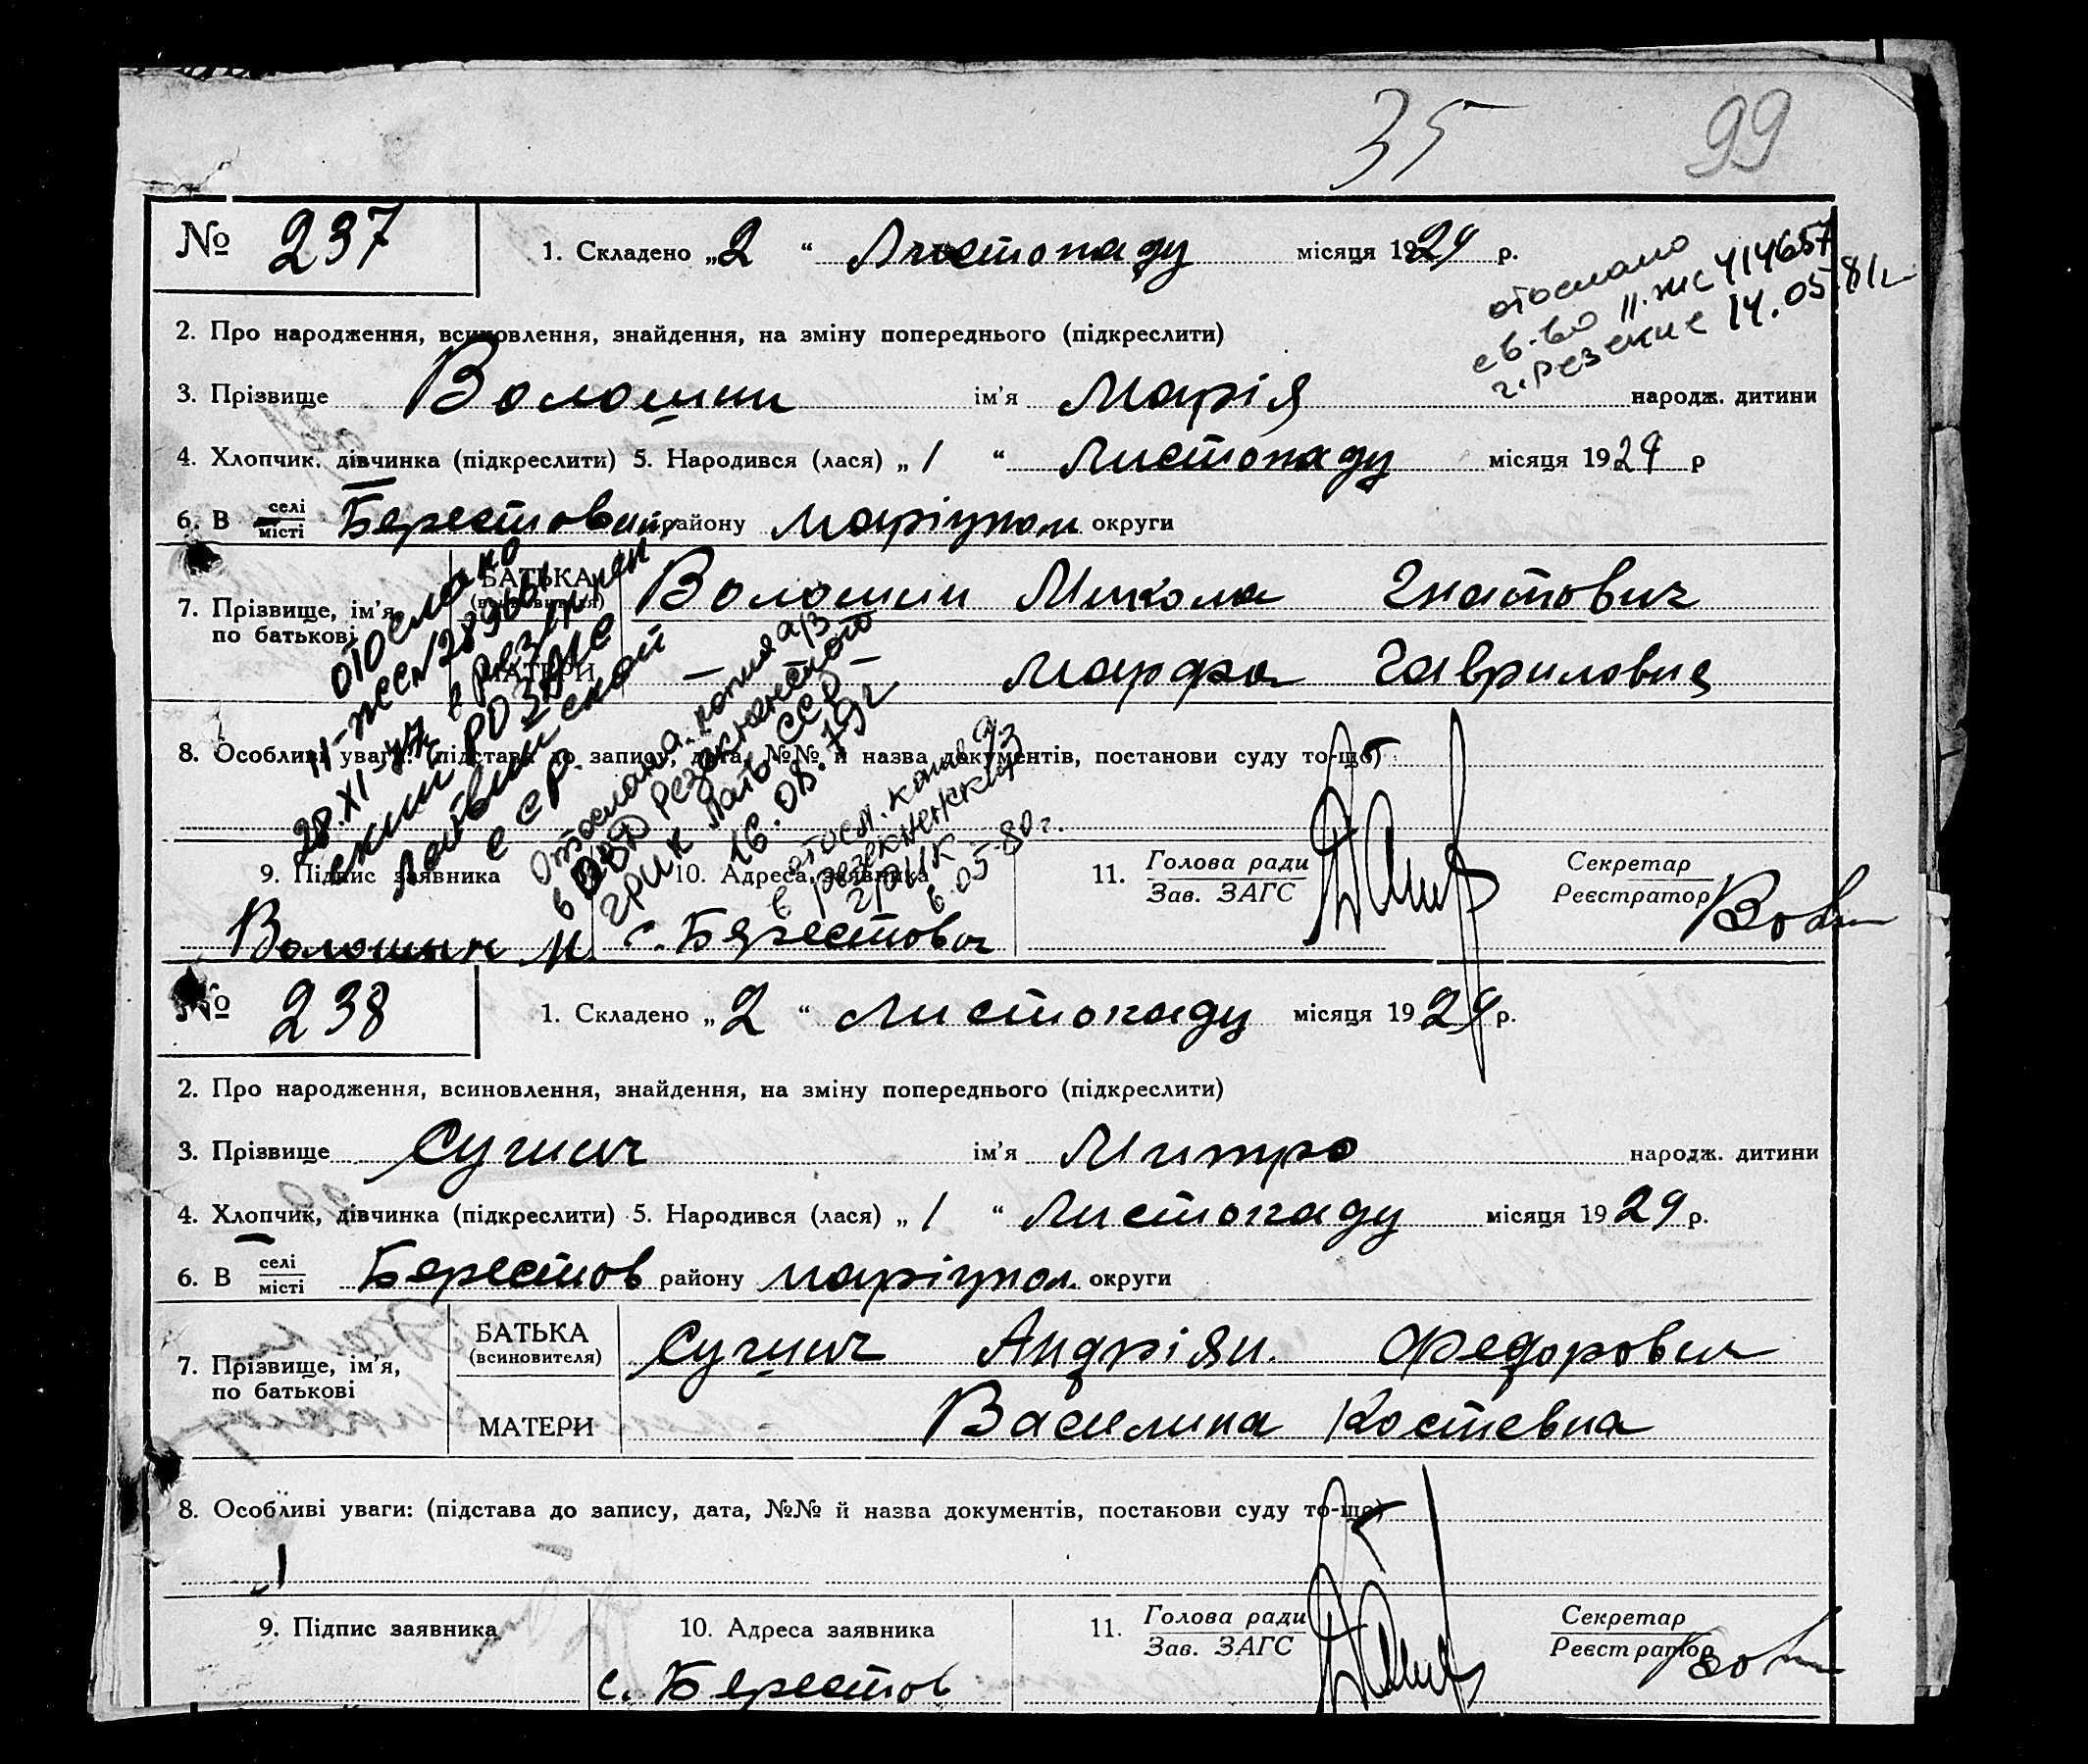 35 99
№ 237 1. Складено „2“ Листопаду місяця 1929 р.
отослано
св-во II-ЖС 414657
г. Резекне 14.05.81г
2. Про народження, всиновлення, знайдення, на зміну попереднього (підкреслити)
3. Прізвище Волошин ім'я Марія народж. дитини
4. Хлопчик. дівчинка (підкреслити) 5. Народився (лася) „1“ Листопаду місяця 1929 р
6. В селі місті Берестов району Маріупол округи
7. Прізвище, ім'я, по батькові БАТЬКА (всиновителя) Волошин Микола Гнатович
МАТЕРИ — Марфа Гавриловна
8. Особливі уваги: (підстава до запису, дата, №№ й назва документів, постанови суду то-що)
отослано
28.XI-
Латвийской
ССР
Отослана копия а/з
в Резекненского
ГРИК Латв ССР
16.08.79г
отосл. копия а/з
в Резекненский
ГРИК
6.05-80г.
9. Підпис заявника 10. Адреса заявника 11. Голова ради Зав. ЗАГС Секретар Реєстратор
Волошин М. с. Берестово
№ 238 1. Складено „2“ Листопаду місяця 1929 р.
2. Про народження, всиновлення, знайдення, на зміну попереднього (підкреслити)
3. Прізвище ім'я Митро народж. дитини
4. Хлопчик, дівчинка (підкреслити) 5. Народився (лася) „1“ Листопаду місяця 1929 р.
6. В селі місті Берестов району Маріупол. округи
7. Прізвище, ім'я, по батькові БАТЬКА (всиновителя) Андріян. Федорович
МАТЕРИ Василина Костевна
8. Особливі уваги: (підстава до запису, дата, №№ й назва документів, постакови суду то-що)
9. Підпис заявника 10. Адреса заявника 11. Голова ради Зав. ЗАГС Секретар Реєстратор
с. Берестов